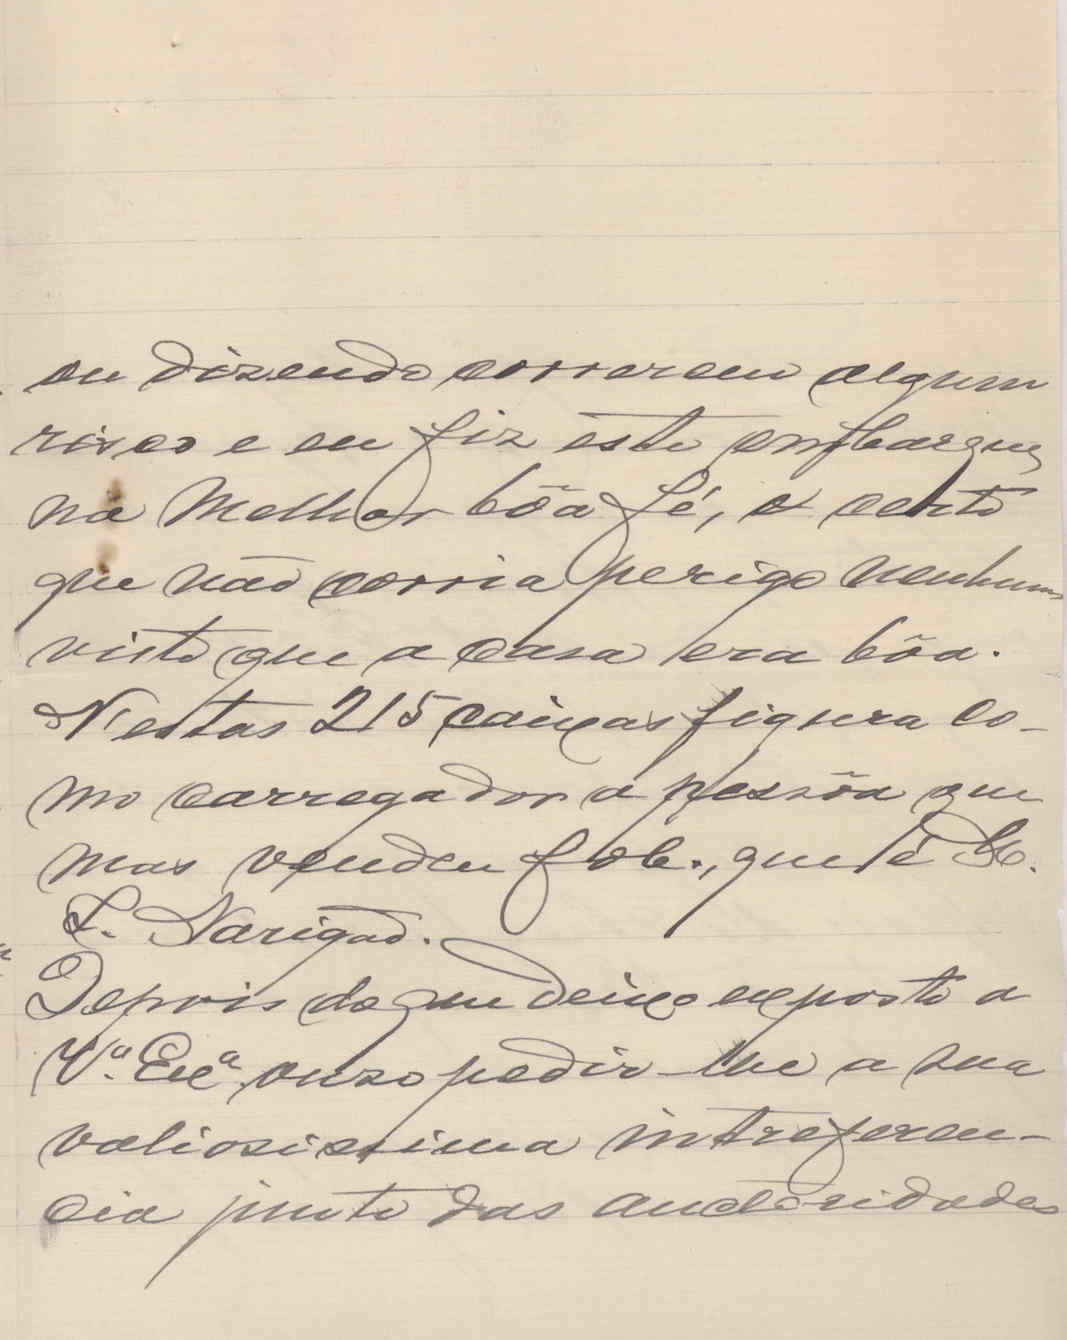 ou dizendo correrem algum
risco e eu fiz este embarque
na Melhor bôa fé, e certo
que não corria perigo nenhum
visto que a casa era bôa.
Nestas 215 caixas figura co-
mo carregador a pessôa que
mas vendeu fob., que é
L. Narigão.
Depois do que deixo exposto a
V.ª Exª, ouso pedir-lhe a sua
valiosissima intreferen-
cia junto das auctoridades